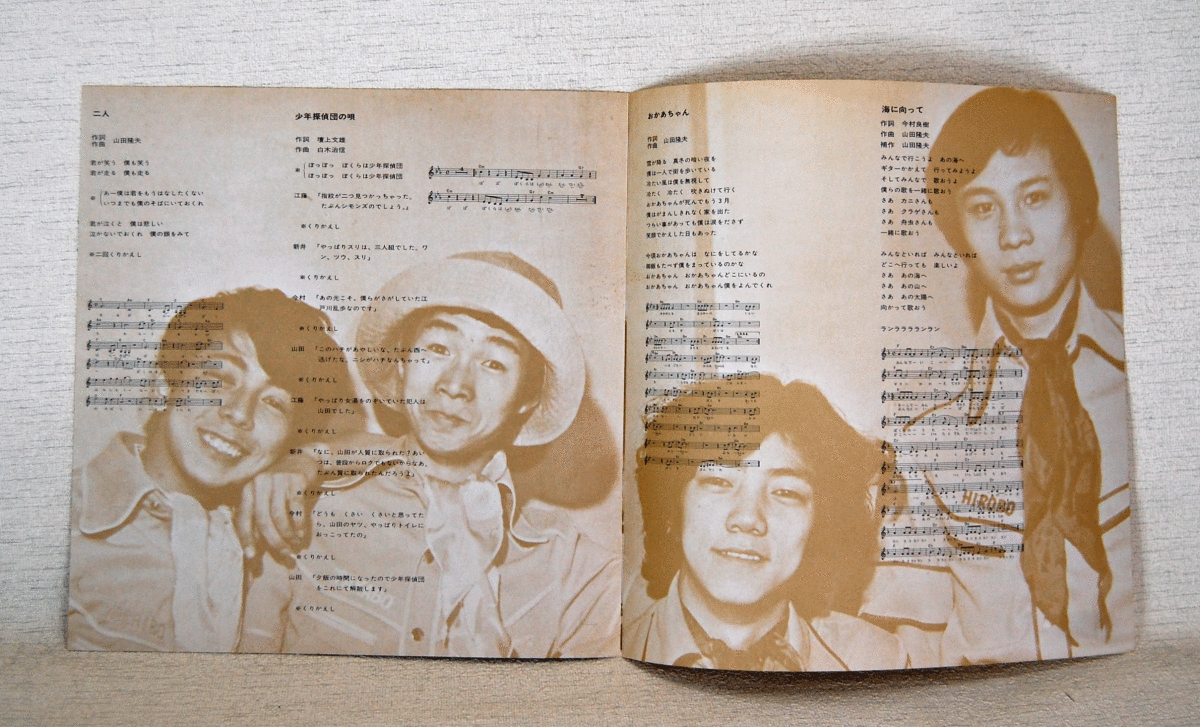 二人
作詞
作曲 山田隆夫
君が笑う 僕も笑う
君が走る 僕も走る
※ おー僕は君をもうはなしたくない
いつまでも僕のそばにいておくれ
君が泣くと 僕は悲しい
泣かないでおくれ 僕の顔をみて
※二回くりかえし
少年探偵団の唄
作詞 壇上文雄
作曲 白木治信
※ ぽっぽっ ぼくらは少年探偵団
ぽっぽっ ぼくらは少年探偵団
江藤 「指紋が二つ見つかっちゃった。
たぶんシモンズのでしょう。」
※くりかえし
新井 「やっぱりスリは、三人組でした。ワ
ン、ツウ、スリ」
※くりかえし
今村 「あの光こそ、僕らがさがしていた江
戸川乱歩なのです」
※くりかえし
山田 「このハチがあやしいな、たぶん西へ
逃げたな、ニシがハチなんちゃって」
※くりかえし
江藤 「やっぱり女湯をのぞいていた犯人は
山田でした」
※くりかえし
新井 「なに、山田が人質に取られた？あい
つは、普段からロクでもないからなあ、
たぶん質に取られたんだろう」
※くりかえし
今村 「どうも くさい くさいと思ってた
ら、山田のヤツ、やっぱりトイレに
おっこってたの」
※くりかえし
山田 「夕飯の時間になったので少年探偵団
をこれにて解散します」
※くりかえし
おかあちゃん
作詞
作曲 山田隆夫
雪が降る 真冬の暗い夜を
僕は一人で街を歩いている
冷たい風は僕を無視して
冷たく 冷たく 吹きぬけて行く
おかあちゃんが死んでもう３月
僕はがまんしきれなく家を出た
つらい事があっても僕は涙をださず
笑顔でかえした日もあった
今頃おかあちゃんは なにをしてるかな
御飯もたべず僕をまっているのかな
おかあちゃん おかあちゃんどこにいるの
おかあちゃん おかあちゃん僕をよんでくれ
海に向って
作詞 今村良樹
作曲 山田隆夫
補作 山田隆夫
みんなで行こうよ あの海へ
ギターかかえて 行ってみようよ
そしてみんなで 歌おうよ
僕らの歌を一緒に歌おう
さあ カニさんも
さあ クラゲさんも
さあ 舟虫さんも
一緒に歌おう
みんなといれば みんなといれば
どこへ行っても 楽しいよ
さあ あの海へ
さあ あの山へ
さあ あの太陽へ
向かって歌おう
ランララララランラン
HIROBO